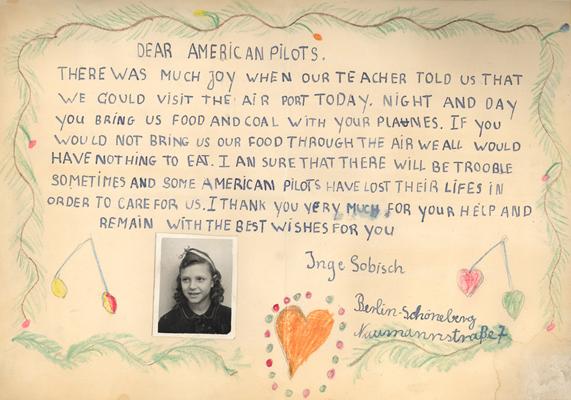 DEAR AMERICAN PILOTS.
THERE WAS MUCH JOY WHEN OUR TEACHER TOLD US THAT
WE COULD VISIT THE AIR PORT TODAY. NIGHT AND DAY
YOU BRING US FOOD AND COAL WITH YOUR PLAUNES. IF YOU
WOULD NOT BRING US OUR FOOD THROUGH THE AIR WE ALL WOULD
HAVE NOTHING TO EAT. I AN SURE THAT THERE WILL BE TROOBLE
SOMETIMES AND SOME AMERICAN PILOTS HAVE LOST THEIR LIFES IN
ORDER TO CARE FOR US. I THANK YOU VERY MUCH FOR YOUR HELP AND
REMAIN WITH THE BEST WISHES FOR YOU
Inge Sobisch
Berlin-Schöneberg
Naumannstraße 7